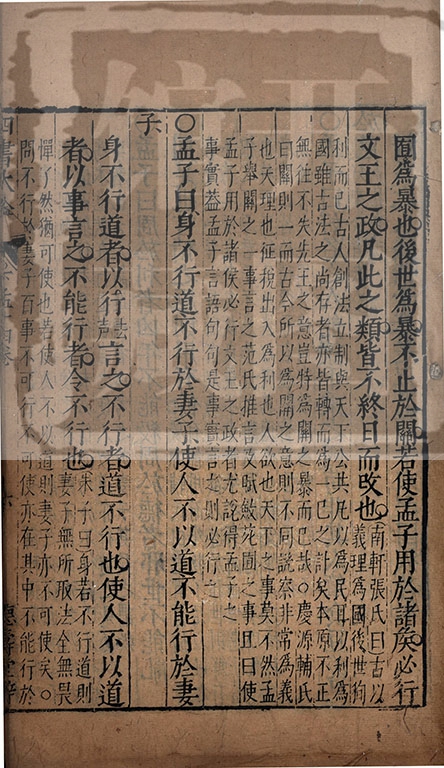 囿爲暴也後世爲暴不止於關若使孟子用於諸侯必行
文王之政凡此之類皆不終日而改也
南軒張氏曰古以
義理爲國後世徇
利而已古人創法立制與天下公共凡以爲民耳以利爲
國雖古法之尚存者亦皆轉而爲一己之計矣本原不正
無往不失先王之意豈特爲關之暴而已哉○慶源輔氏
曰關則一而古今所以爲關之意則不同譏察非常爲義
也天理也征稅出入爲利也人欲也天下之事莫不然孟
子舉關之一事言之范氏推言及賦斂苑囿之事且曰使
孟子用於諸侯必行文王之政者尤說得孟子之
事實蓋孟子言語句句是事實言之則必行之
○孟子曰身不行道不行於妻子使人不以道不能行於妻
子
身不行道者以行去聲言之不行者道不行也使人不以道
者以事言之不能行者令不行也
朱子曰身若不行道則
妻子無所取法全無畏
憚了然猶可使也若使人不以道則妻子亦不可使矣○
問不行於妻子百事不可行不可使亦在其中不能行於
四書大全